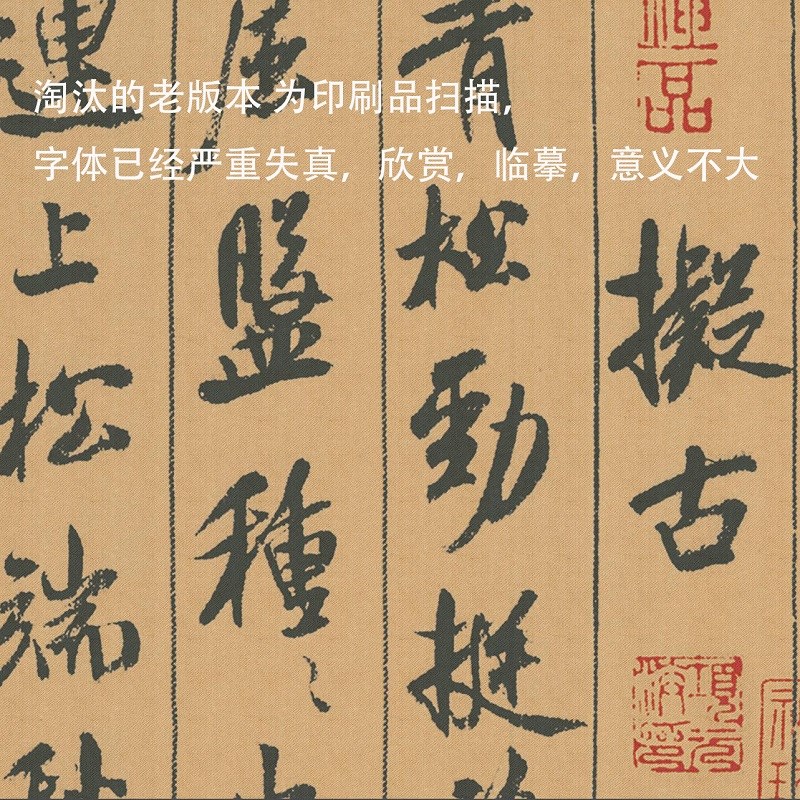 淘汰的老版本 为印刷品扫描,
字体已经严重失真，欣赏，临摹，意义不大
擬古
青松勁挺
屈盤種〻
連上松端